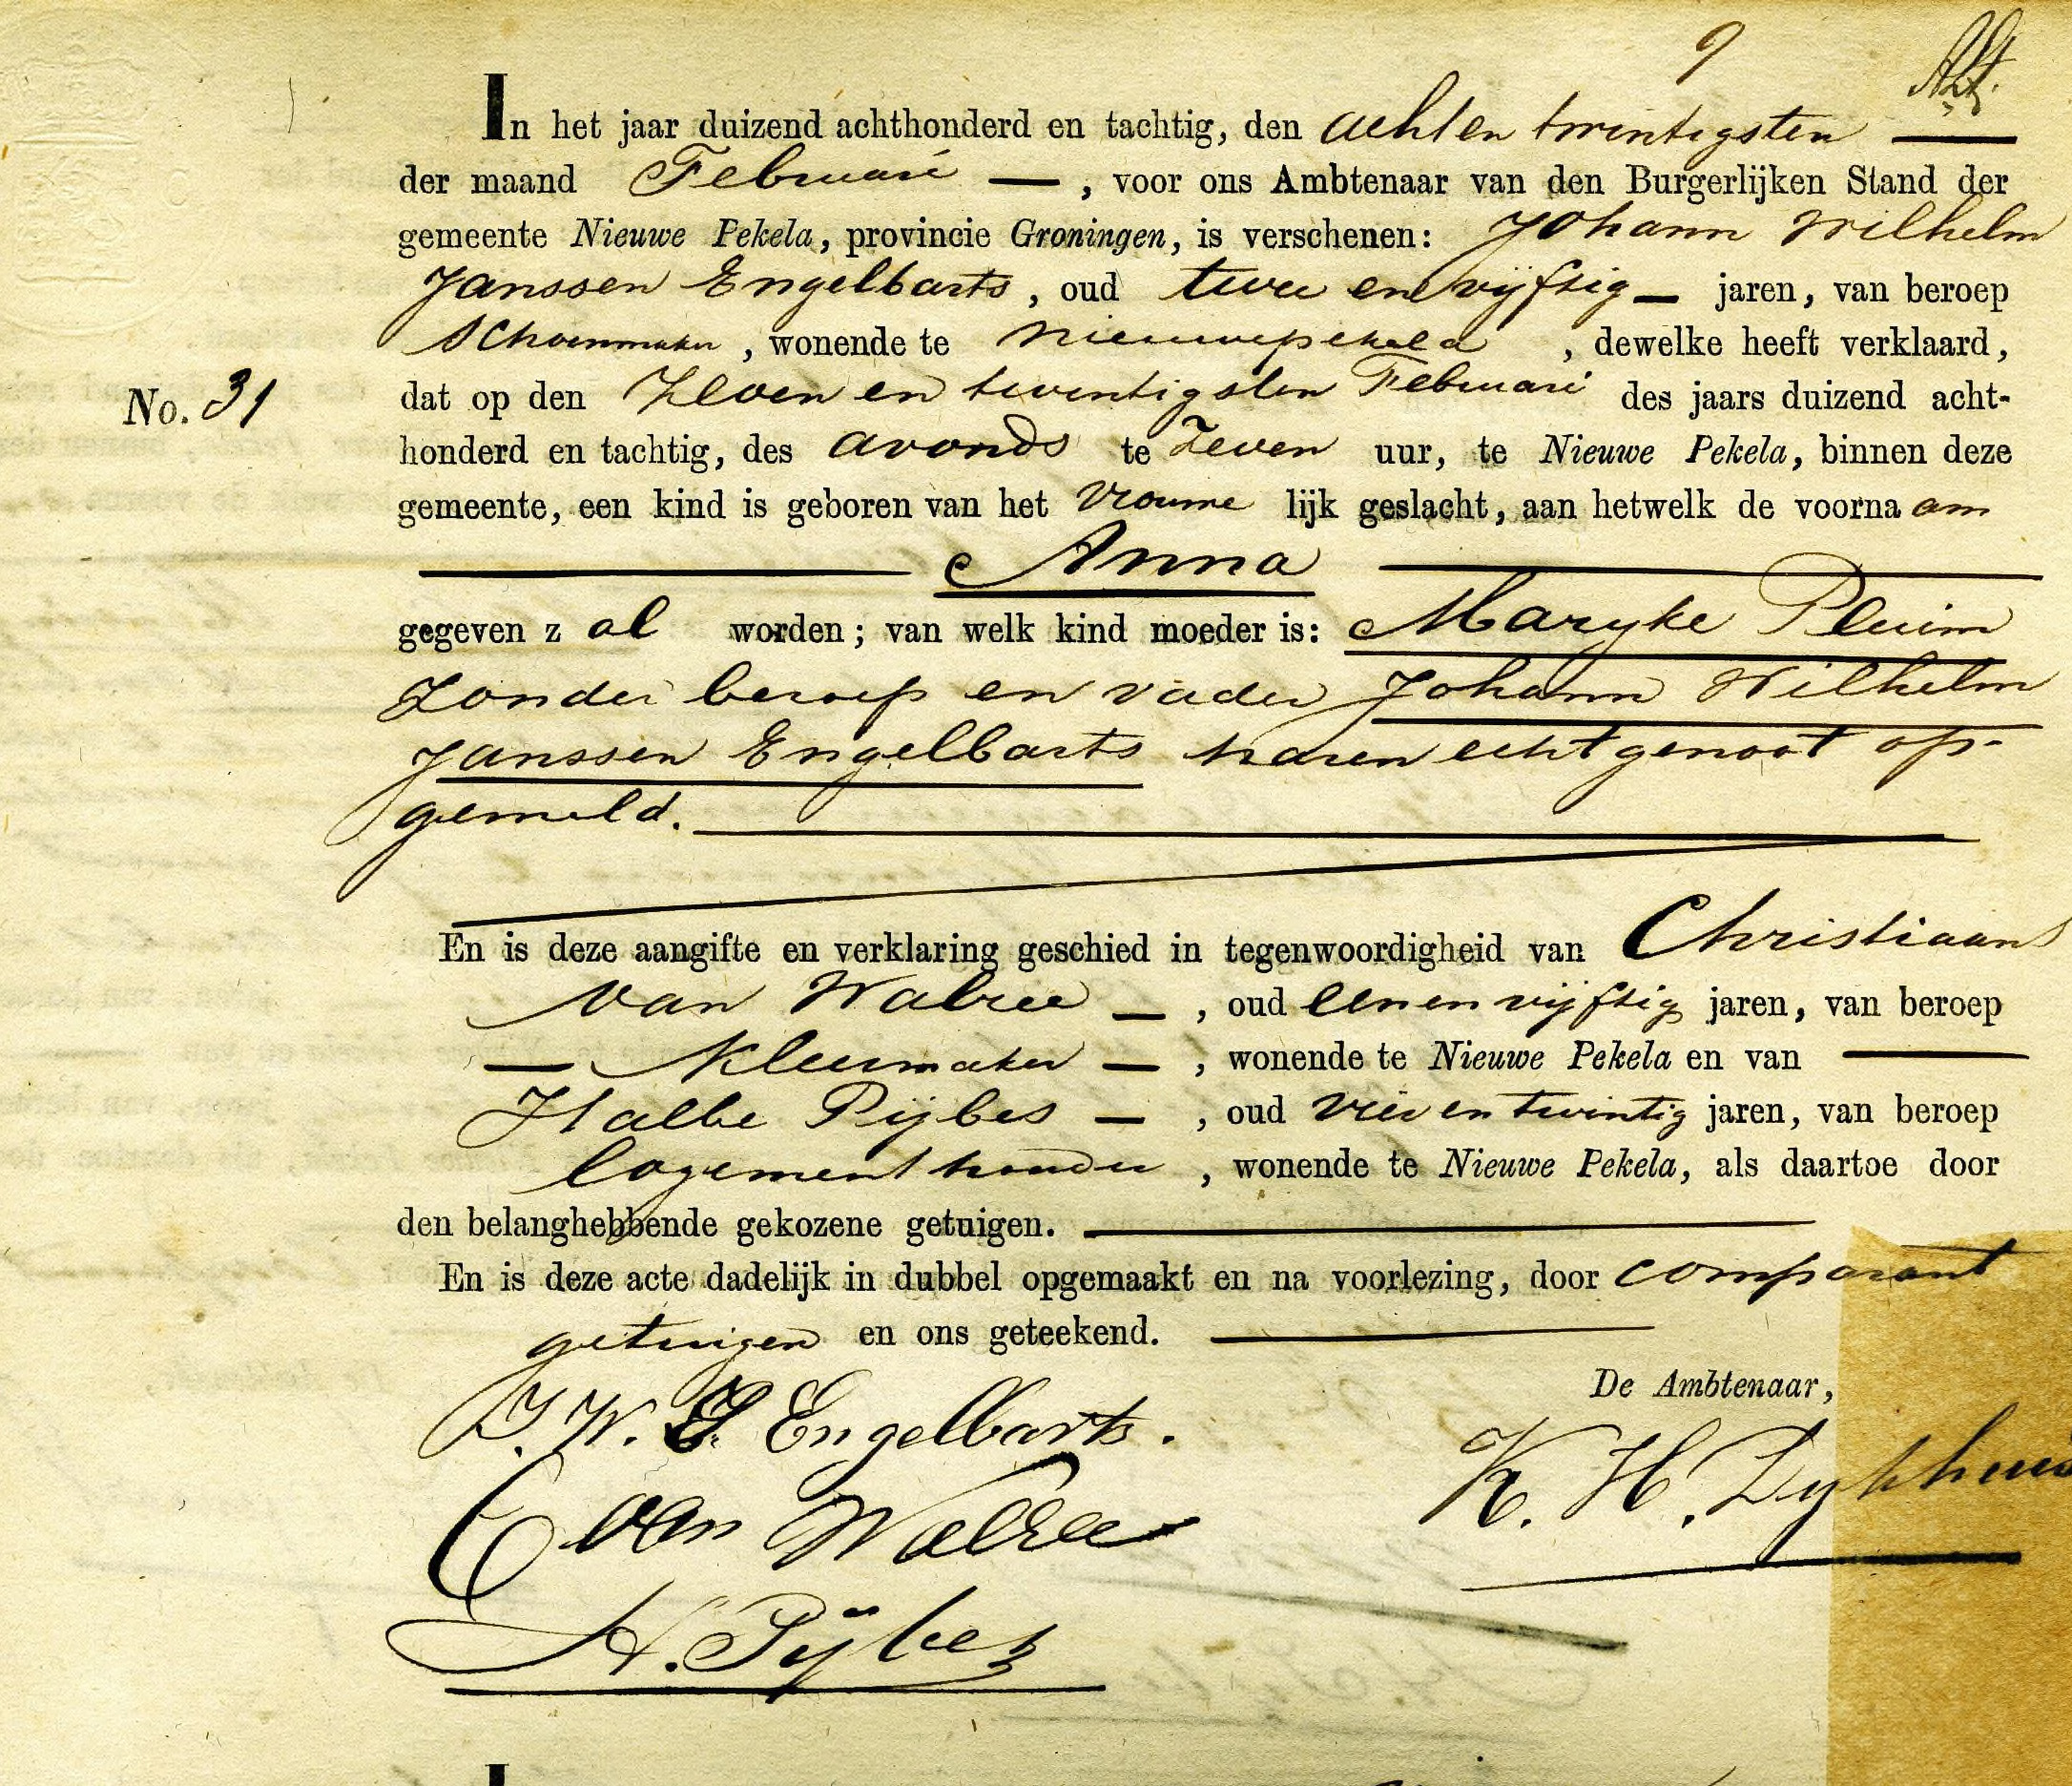 9
In het jaar duizend achthonderd en tachtig, den acht en twintigsten
der maand Februari, voor ons Ambtenaar van den Burgerlijken Stand der
gemeente Nieuwe Pekela, provincie Groningen, is verschenen: Johann Wilhelm
Janssen Engelbarts, oud twee en vijftig jaren, van beroep
Schoenmaker, wonende te Nieuwepekela, dewelke heeft verklaard,
No. 31 dat op den Zeven en twentigsten Februari des jaars duizend acht-
honderd en tachtig, des avonds te Zeven uur, te Nieuwe Pekela, binnen deze
gemeente, een kind is geboren van het Vrouwe lijk geslacht, aan hetwelk de voorna am
Anna
gegeven z al worden; van welk kind moeder is: Maryke Pluim
Zonder beroep en vader Johann Wilhelm
Janssen Engelbarts haren echtgenoot op-
gemeld.
En is deze aangifte en verklaring geschied in tegenwoordigheid van Christiaan
van Walree, oud een en vijftig jaren, van beroep
Kleermaker, wonende te Nieuwe Pekela en van
Halbe Pijbes, oud vier en twintig jaren, van beroep
logementhouder, wonende te Nieuwe Pekela, als daartoe door
den belanghebbende gekozene getuigen.
En is deze acte dadelijk in dubbel opgemaakt en na voorlezing, door comparant
getuigen en ons geteekend.
De Ambtenaar,
J. W. J. Engelbarts.
K. H. Dykhuis
C van Walree
H. Pijbes